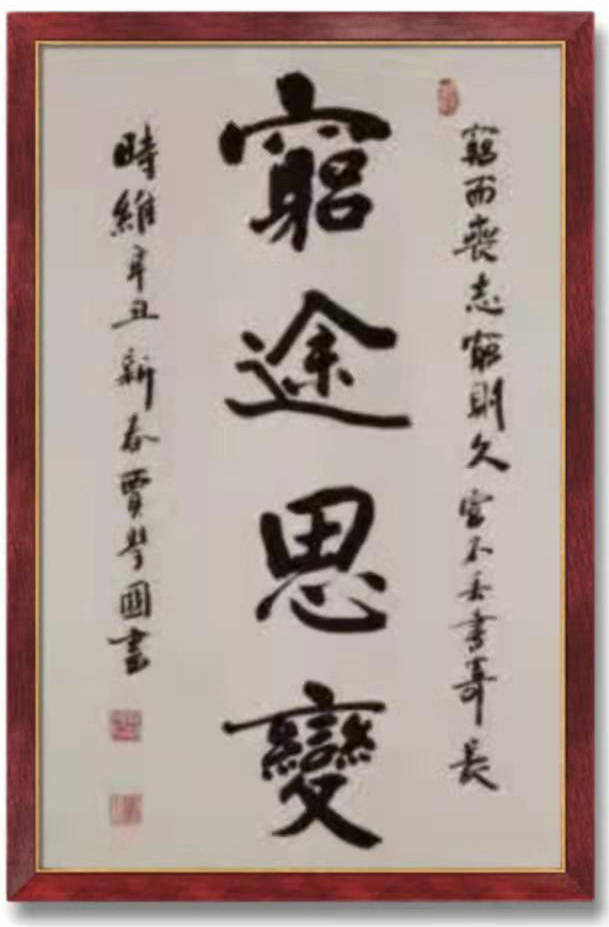 窮而喪志窮則久不丢書長
窮途思變
時維辛丑新春賈國書